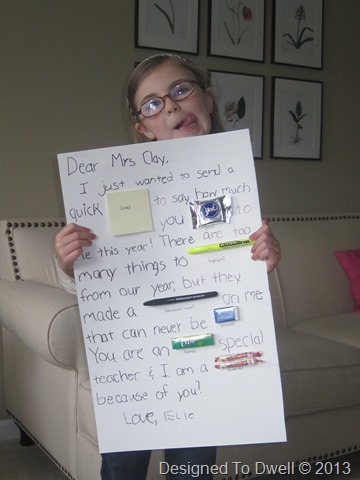 Dear Mrs Clay,
I just wanted to send a
quick to say how much
you to
me this year! There are too
many things to
from our year, but they
made a on me
that can never be
You are an Extra special
teacher & I am a
because of you!
Love, Ellie
Designed To Dwell © 2013